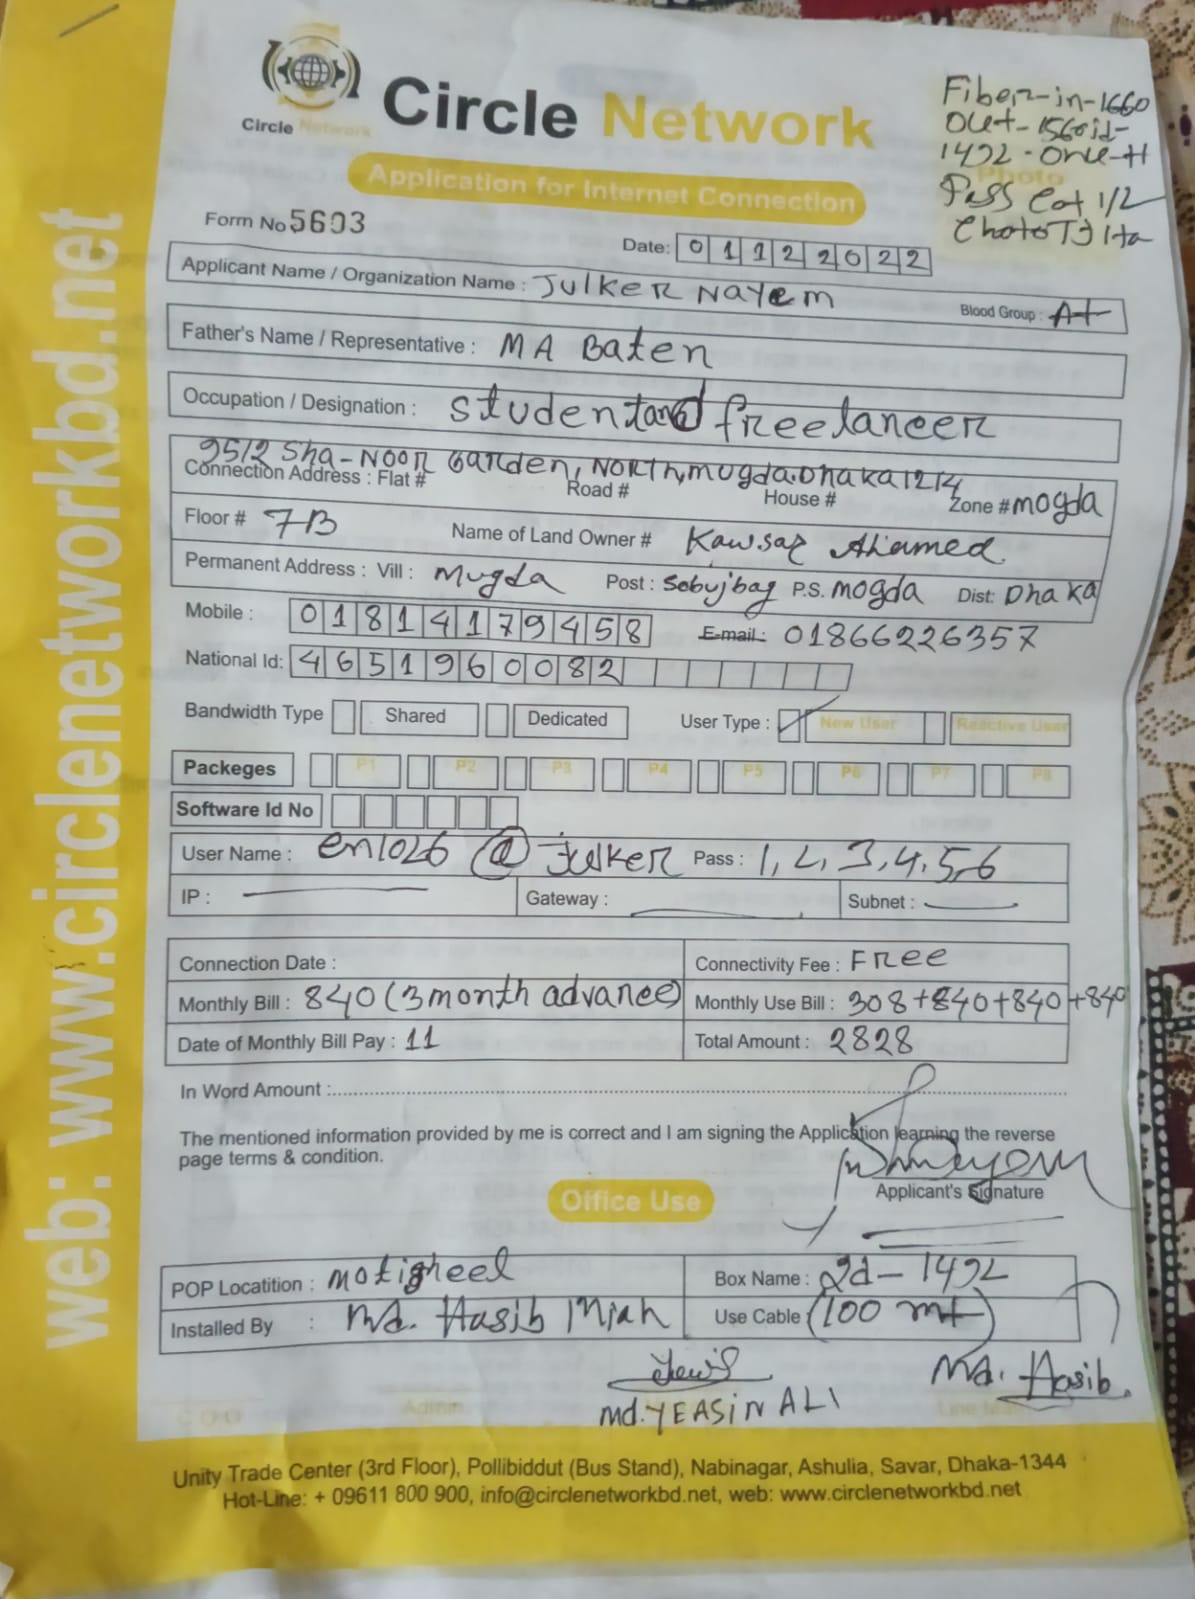 Circle Network
Circle Network
Application for Internet Connection
Fiber-in-1660
out-1560id-
1492-onu-H
Photo
Pass Cat 1/2
Choto TJ 1ta
Form No 5603
Date: 01122022
Applicant Name / Organization Name : Julker Nayem
Blood Group : A+
Father's Name / Representative : MA Baten
Occupation / Designation : student and freelancer
95/2 Sha-Noor Garden, North, mugda. Dhaka 1214
Connection Address : Flat # Road # House # Zone # mogda
Floor # 7B Name of Land Owner # Kawsar Ahamed.
Permanent Address : Vill : Mugda Post : Sobujbag P.S. mogda Dist: Dhaka
Mobile : 01814179458 E-mail : 01866226357
National Id: 4651960082
Bandwidth Type Shared Dedicated User Type : New User Reactive User
Packeges P1 P2 P3 P4 P5 P6 P7 P8
Software Id No
User Name : en1026 @ julker Pass : 1,2,3,4,5,6
IP : Gateway : Subnet :
Connection Date : Connectivity Fee : Free
Monthly Bill : 840 (3 month advance) Monthly Use Bill : 308+840+840+840
Date of Monthly Bill Pay : 11 Total Amount : 2828
In Word Amount :
The mentioned information provided by me is correct and I am signing the Application learning the reverse
page terms & condition.
Applicant's Signature
Office Use
POP Locatition : motigheel Box Name : 2d-1492
Installed By : Md. Hasib Miah Use Cable (100 mt)
md. YEASIN ALI
Md. Hasib.
COO Admin
Unity Trade Center (3rd Floor), Pollibiddut (Bus Stand), Nabinagar, Ashulia, Savar, Dhaka-1344
Hot-Line: + 09611 800 900, info@circlenetworkbd.net, web: www.circlenetworkbd.net
web: www.circlenetworkbd.net